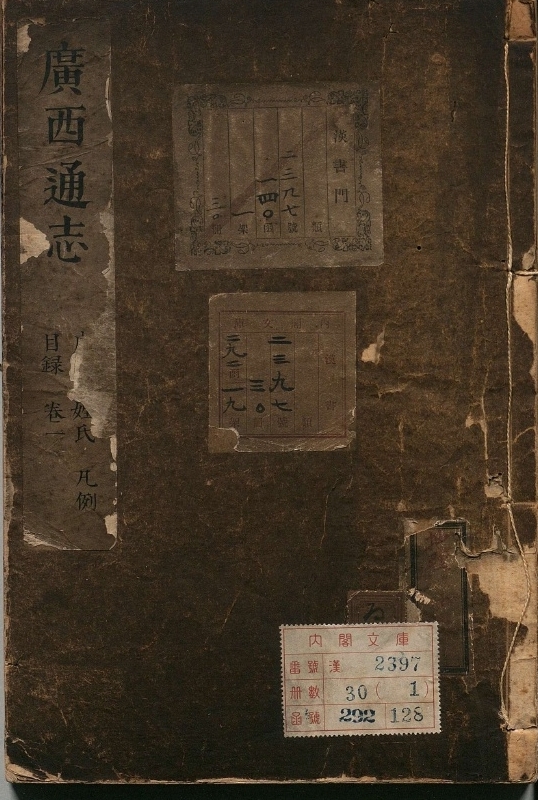 廣西通志
姓氏 凡例
目録 卷一
漢書門
二三九七號
一四〇函
一架
三〇冊
類
二三九七
三〇
二九二
一九
内閣文庫
番號 漢 2397
冊數 30(1)
函號 292 128